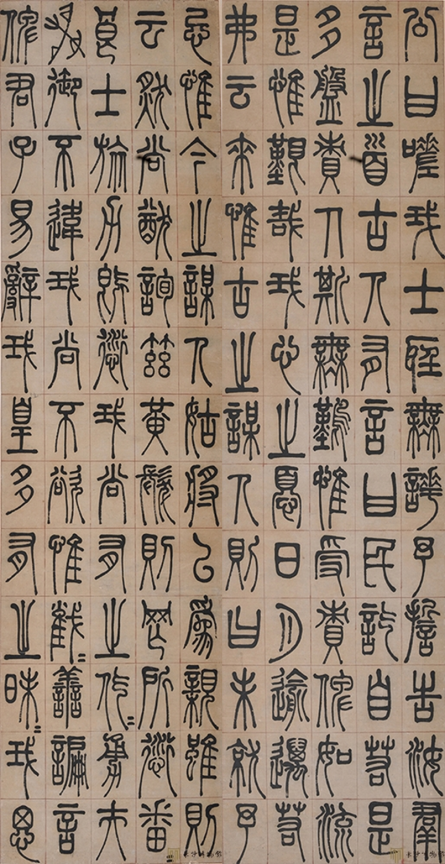 公曰嗟我士聽無譁予誓告汝羣
言之首古人有言曰民訖自若是
多盤責人斯無難惟受責俾如流
是惟艱哉我心之憂日月逾邁若
弗云來惟古之謀人則曰未就予
忌惟今之謀人姑將以為親雖則
云然尚猷詢茲黃髮則罔所愆番
良士旅力既愆我尚有之仡〻勇夫
射御不違我尚不欲惟截〻善諞言
俾君子易辭我皇多有之昧〻我思